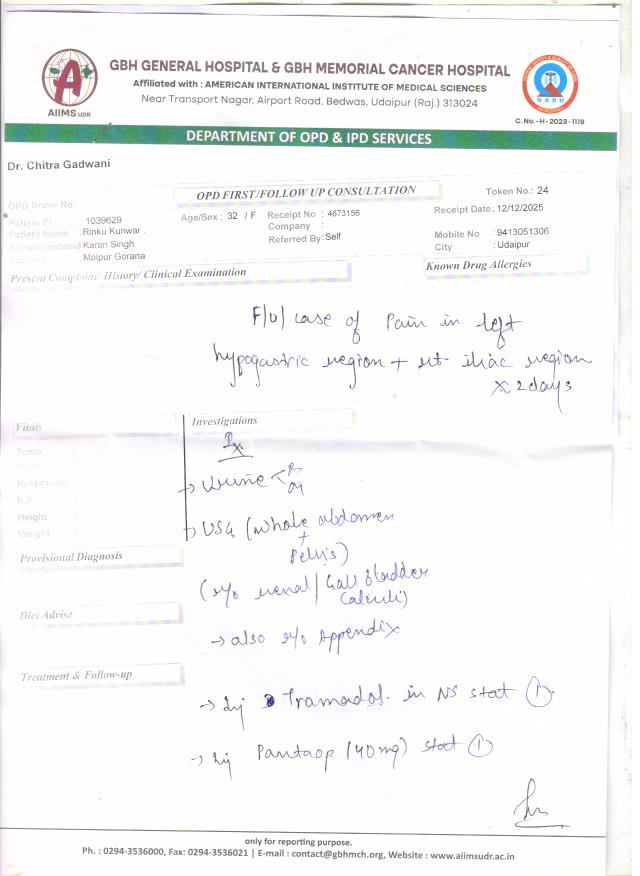 GBH GENERAL HOSPITAL & GBH MEMORIAL CANCER HOSPITAL
Affiliated with : AMERICAN INTERNATIONAL INSTITUTE OF MEDICAL SCIENCES
Near Transport Nagar, Airport Road, Bedwas, Udaipur (Raj.) 313024
AIIMS.UDR
NABH
C. No. - H - 2023 - 1119
DEPARTMENT OF OPD & IPD SERVICES
Dr. Chitra Gadwani
OPD FIRST/FOLLOW UP CONSULTATION
Token No.: 24
OPD Room No:
Patient ID : 1039629
Age/Sex : 32 / F
Receipt No : 4673156
Receipt Date : 12/12/2025
Patient Name : Rinku Kunwar .
Company :
Mobile No : 9413051306
Karan Singh
Referred By : Self
City : Udaipur
Moipur Gorana
Present Complaint/ History/ Clinical Examination
Known Drug Allergies
F/U/ case of Pain in left
hypogastric region + rt iliac region
x 2 days
Vitals
Investigations
Temp :
Ix
Respiration :
→ Urine < R
M
B.P. :
Height :
→ USG (whole abdomen
Weight :
+
Pelvis)
Provisional Diagnosis
(r/o renal / Gall Bladder
Calculi)
Diet Advise
→ also r/o Appendix
Treatment & Follow-up
→ Inj Tramadol in NS stat ①
→ Inj Pantaop (40mg) stat ①
only for reporting purpose.
Ph. : 0294-3536000, Fax: 0294-3536021 | E-mail : contact@gbhmch.org, Website : www.aiimsudr.ac.in